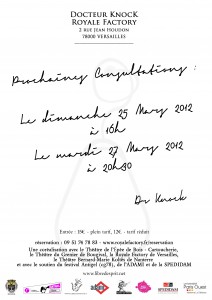 Docteur Knock
Royale Factory
2 rue Jean Houdon
78000 VERSAILLES
Prochaines Consultations :
Le dimanche 25 Mars 2012
à 16h
Le mardi 27 Mars 2012
à 20h30
Dr Knock
Entrée : 15€ - plein tarif, 12€ - tarif réduit
réservation - 09 51 76 78 83 - www.royalefactory.fr/reservation
Une coréalisation avec le Théâtre de l'Epée de Bois - Cartoucherie,
le Théâtre du Grenier de Bougival, le Royale Factory de Versailles,
le Théâtre Bernard-Marie Koltès de Nanterre
et avec le soutien du festival Antigel (
), de l'ADAMI et de la SPEDIDAM
SPEDIDAM